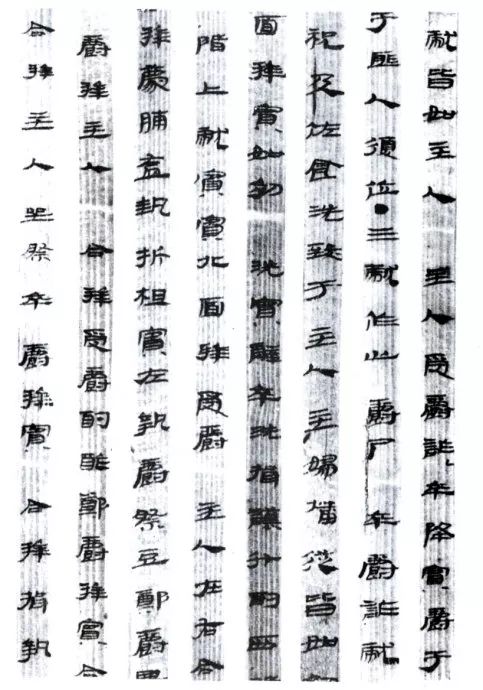 獻皆如主人主人受爵詐卒降實爵于
于匪入復位●三獻作止爵尸卒爵詐獻
祝及佐食洗致于主人主婦燔從皆如
面拜賓如初洗賓辭卒洗揖讓升酌西
階上獻賓賓北面拜受爵主人在右合
拜薦脯醢執折柤賓左執爵祭豆鄭爵興
爵拜主人合拜受爵酌酢鄭爵拜賓合
合拜主人坐祭卒爵拜賓合拜揖執